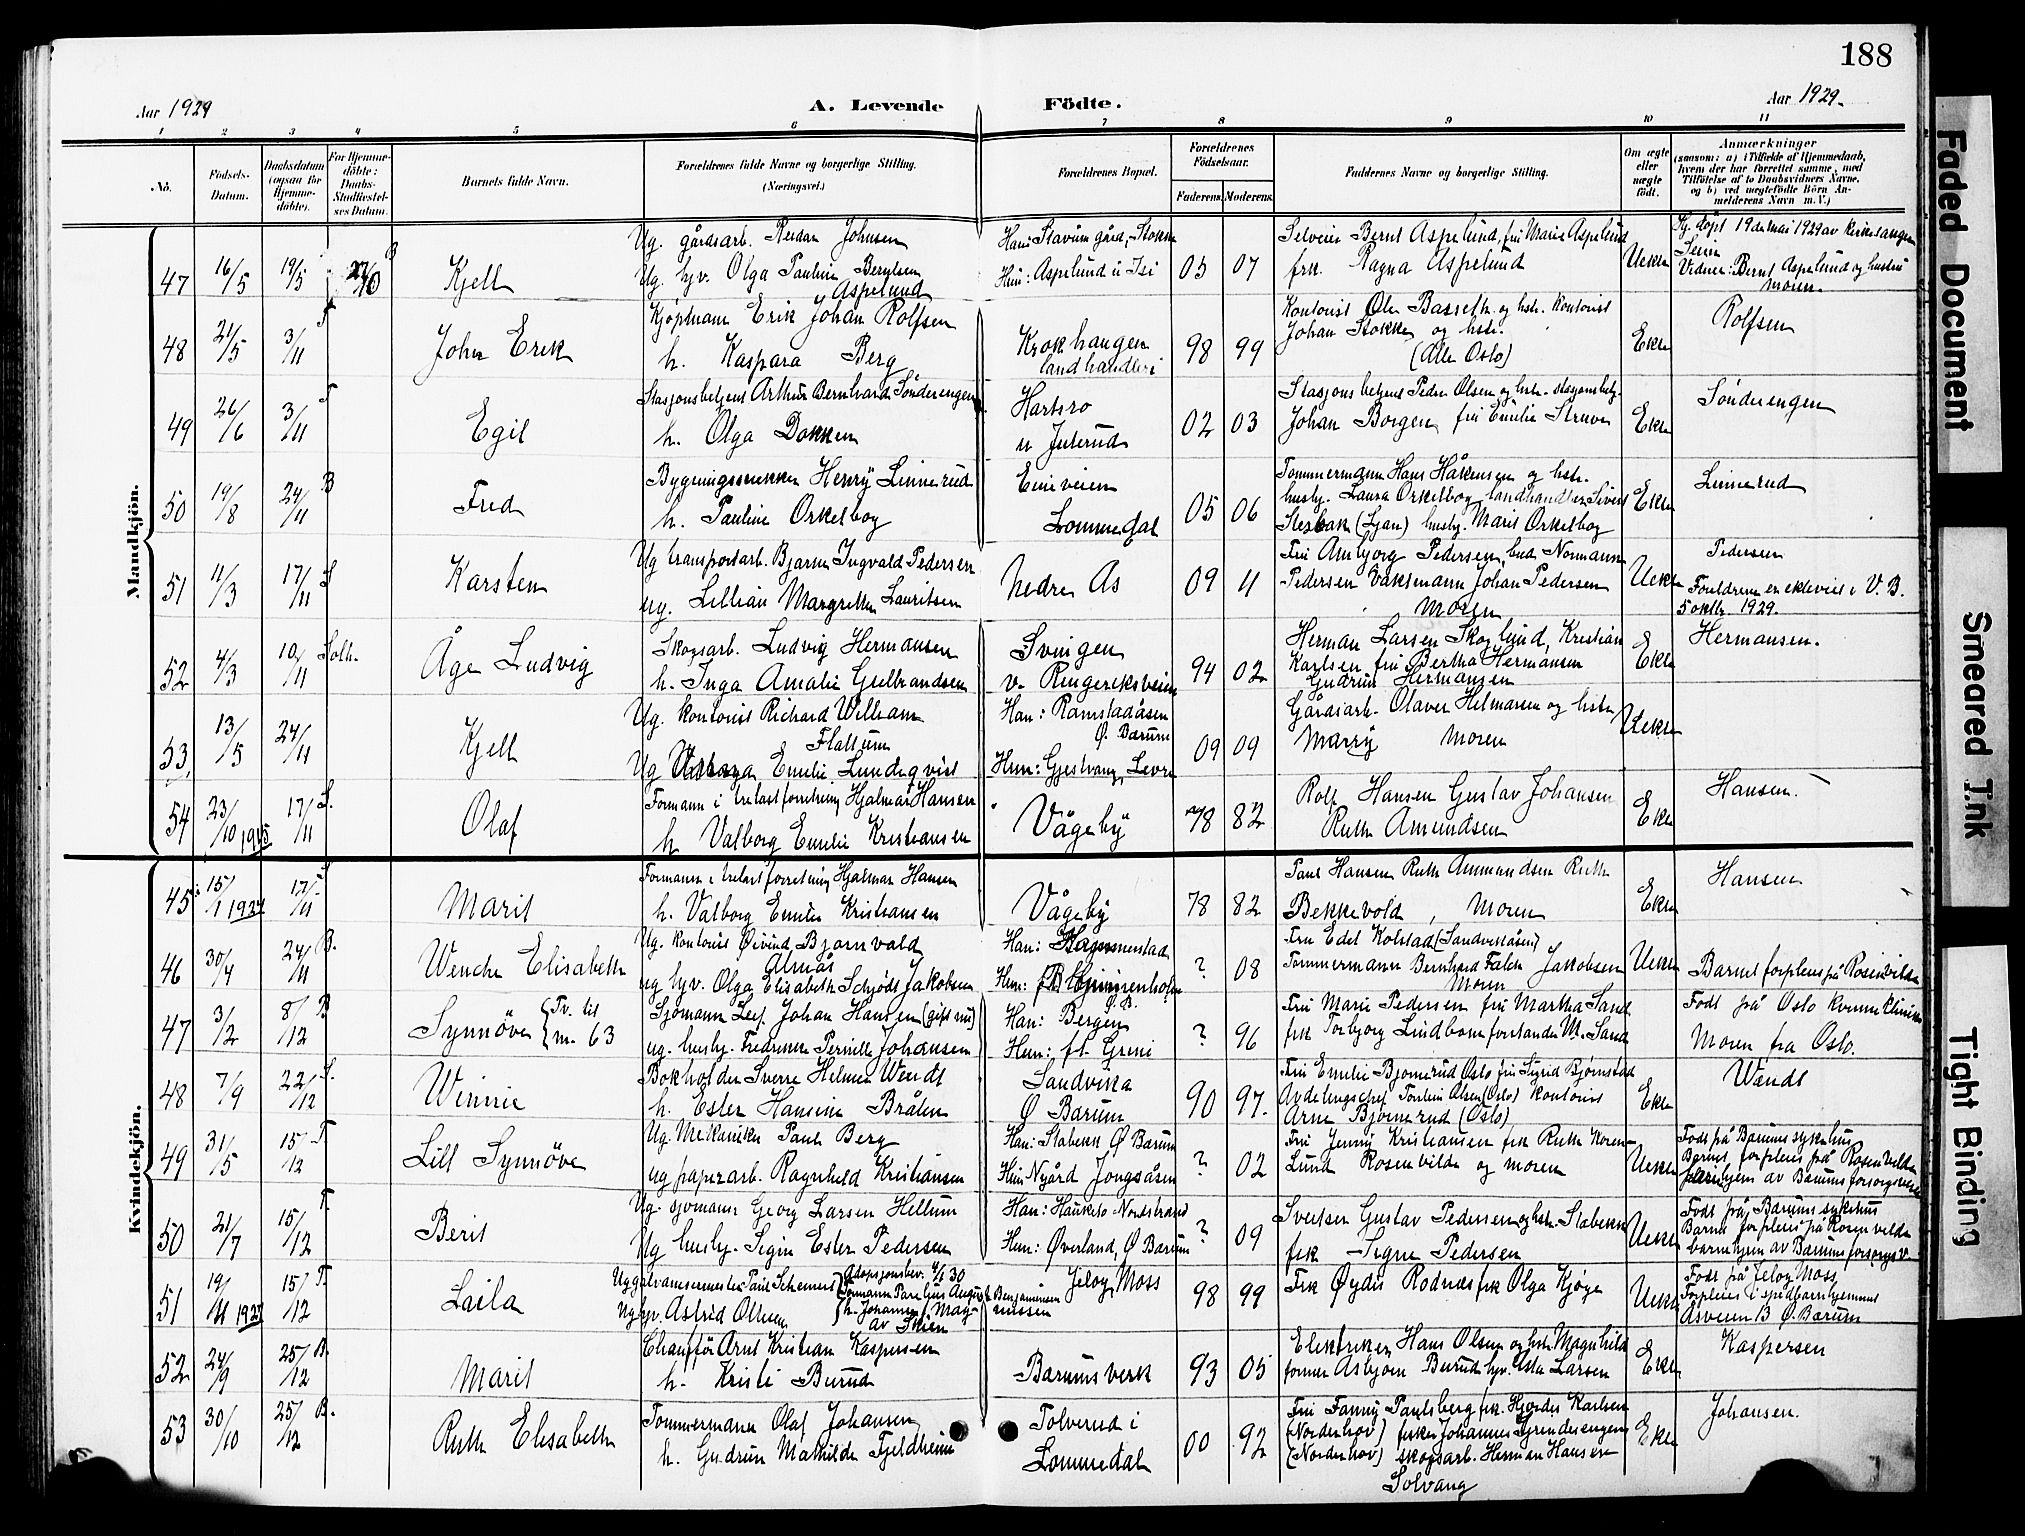 188
Aar 1929
A. Levende Födte.
Aar 1929.
1 2 3 4 5 6 7 8 9 10 11
No.
Födsels-Datum.
Daabsdatum (ogsaa for Hjemme-döbte).
For Hjemme-döbte: Daabs-Stadfæstel-ses Datum.
Barnets fulde Navn.
Forældrenes fulde Navne og borgerlige Stilling.
(Næringsvei.)
Forældrenes Bopæl.
Forældrenes Födselsaar.
Faderens. Moderens.
Faddernes Navne og borgerlige Stilling.
Om ægte eller uægte födt.
Anmærkninger
(saasom: a) i Tilfælde af Hjemmedaab, hvem der har forrettet samme, med Tilföielse af to Daabsvidners Navne, og b) ved uægtefödte Börn An-melderens Navn m. V.)
Mandkjön.
47 16/5 19/5 Kjell
Ug. gårdsarb. Reidar Johnsen
Ug. hv. Olga Pauline Berntsen Aspelund
Han: Stavum gård, Stokke
Hun: Aspelund i Isi
05 07
Selveier Bernt Aspelund, fru Marie Aspelund
frk. Ragna Aspelund
Uekte
Hj. døpt 19de mai 1929 av kirkesanger
Vidner: Bernt Aspelund og hustru
moren.
48 21/5 3/11 John Erik
Kjøpmann Erik Johan Rolfsen
h. Kaspara Berg
Krokhaugen landhandleri
98 99
Kontorist Ole Basseth og hstr. kontorist
Johan Stokke og hstr.
(Alle Oslo)
Ekte
Rolfsen
49 26/6 3/11 Egil
Stasjonsbetjent Arthur Bernhard Sønderengen
h. Olga Dokken
Hartsro
n Juterud
02 03
Stasjonsbetjent Peder Olsen og hstr. stasjonsbetj.
Johan Borgen, fru Emilie Struve
Ekte
Sønderengen
50 19/8 24/11 B Fred
Bygningssnekker Henry Linnerud
h. Pauline Orkelbog
Eineveien
Lommedal
05 06
Tømmermann Hans Håkensen og hstr.
husby. Laura Orkelbog landhandler Sivert
Stesbak (Ljan) husby. Marit Orkelbog
Ekte
Linnerud
51 11/3 17/11 S Karsten
Ug transportarb. Bjarne Ingvald Pedersen
ug. Lillian Margrethe Lauritsen
Nedre Ås
09 11
Fru Ambjørg Pedersen, bud Normann
Pedersen Vaktmann Johan Pedersen
Moren
Uekte
Pedersen
Foreldrene er ekteviet i V. B.
5 oktbr 1929.
52 4/3 10/11 Solh. Åge Ludvig
Skogsarb. Ludvig Hermansen
h. Inga Amalie Gulbrandsen
Svingen
v. Ringeriksveien
94 02
Herman Larsen Skoglund, Kristian
Karlsen fru Bertha Hermansen
Gudrun Hermansen
Ekte
Hermansen.
53 13/5 24/11 Kjell
Ug. kontorist Richard William
Flattum
Ug Emilie Lundeqvist
Han: Ramstadåsen
Ø. Bærum
Hun: Gjestvang, Levre
09 09
Gårdsarb. Olaver Helmersen og hstr.
Marry Moren
Uekte
54 23/10 1915 17/11 S. Olaf
Formann i trelastforretning Hjalmar Hansen
h. Valborg Emilie Kristiansen
Vågeby
78 82
Rolf Hansen Gustav Johansen
Ruth Amundsen
Ekte
Hansen.
Kvindekjön.
45 15/1 1924 17/11 S Marit
Formann i trelastforretning Hjalmar Hansen
h. Valborg Emilie Kristiansen
Vågeby
78 82
Paul Hansen Ruth Ammundsen Ruth
Bekkevold, Moren
Ekte
Hansen
46 30/4 24/11 B. Wenche Elisabeth
Ug. kontorist Øivind Bjørnvald
Almås
ug hv. Olga Elisabeth Schjødt Jakobsen
Han:
Hun:
? 08
Fru Edel Kolstad (Sandveståsen)
Tømmermann Bernhard Falch Jakobsen
Moren
Uekte
Barnet forpleies på Rosenvilde
47 3/2 8/12 B Synnöve {Tv. til m. 63
Sjömann Leif Johan Hansen (gift nu)
ug. husby. Fredrikke Pernille Johansen
Han: Bergen
Hun: ft. Greni
? 96
Fru Marie Pedersen fru Martha Sand
frk Torbjorg Lindbom forstander M. Sand
Født på Oslo kvinneklinikk
Moren fra Oslo.
48 7/9 22/12 S. Winnie
Bokholder Sverre Helmer Wendt
h. Ester Hansine Bråten
Sandvika
Ø Bærum
90 97.
Fru Emilie Bjørnerud Oslo fru Sigrid Bjørnstad
Avdelingschef Torleiv Olsen (Oslo) kontorist
Arne Bjørnerud (Oslo)
Ekte
Wendt
49 31/5 15/12 T. Lill Synnöve
Ug. Mekaniker Paul Berg
ug papirarb. Ragnhild Kristiansen
Han: Stabekk Ø Bærum
Hun: Nygård Jongsåsen
? 02
Fru Jenny Kristiansen frk Ruth Koren-
Lund Rosenvilde og moren
Uekte
Født på Bærums sykehus
Barnet forpleies på Rosenvilde
barnehjem av Bærums forsorgsvesen
50 21/7 15/12 T. Berit
Ug. sjømann Georg Larsen Hellum
Ug husby. Signe Ester Pedersen
Han: Hauketo Nordstrand
Hun: Øverland, Ø Bærum
? 09
Sveiser Gustav Pedersen og hstr. Stabekk
frk Signe Pedersen
Uekte
Født på Bærums sykehus
Barnet forpleies på Rosenvilde
barnehjem av Bærums forsorgsv.
51 19/11 1927 15/12 T. Laila
Ug galvanisermester Paul Schemers
Ug hv. Astrid Olsen
Adopsjonsbev. 4/1 30
Formann Pareliús August Benjaminsen
h. Johanne f. Magnussen
av Skien
Jeløy, Moss
98 99
Frk Øydis Rødnæs frk Olga Kjøge
Uekte
Født på Jeløy Moss
Forpleies i spedbarnhjemmet
Åsveien B Ø. Bærum
52 24/9 25/12 B. Marit
Chauffør Arnt Kristian Kaspersen
h. Kristi Burud
Bærumsverk
93 05
Elektriker Hans Olsen og hstr. Magnhild
former Asbjørn Burud hv. Asta Larsen
Ekte
Kaspersen
53 30/10 25/12 B. Ruth Elisabeth
Tømmermann Olaf Johansen
h. Gudrun Mathilde Fjeldheim
Tolverud i
Lommedal
00 92
Fru Fanny Paulsberg frk. Hjørdis Karlsen
(Norderhov) fisker Johannes Grenderengen
(Norderhov) skogsarb. Herman Hansen
Solvang
Ekte
Johansen.
Faded Document
Smeared Ink
Tight Binding